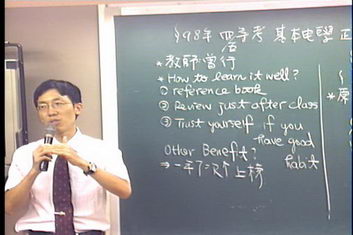 §98年 四等考 基本电學 正
*教師當行
*How to learn it well?
① reference book
② Review just after class
③ Trust yourself if you
have good
habit
Other Benefit?
上榜
*原